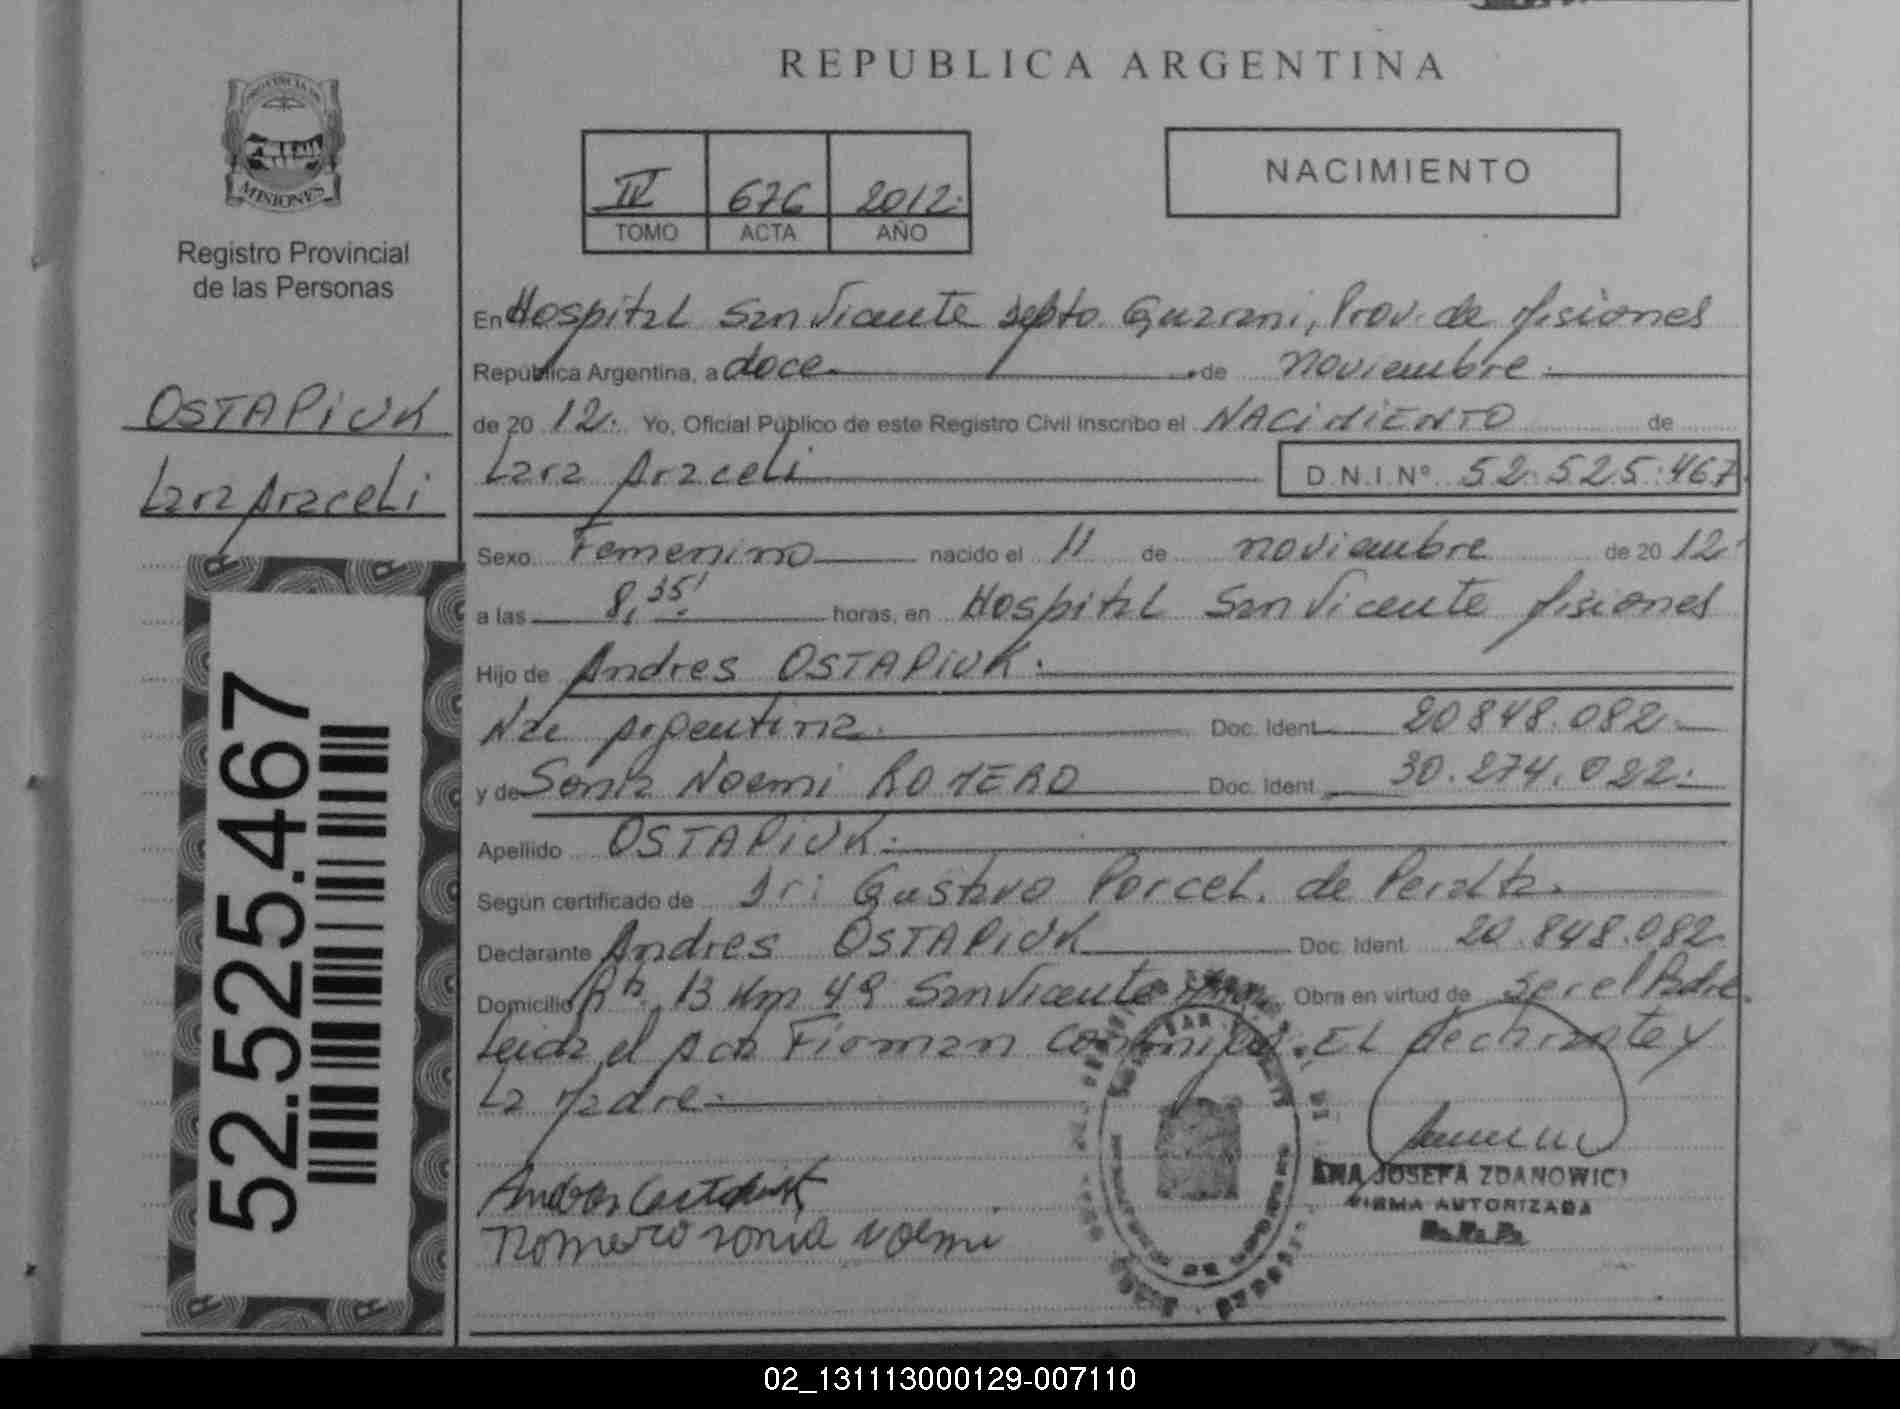 REPUBLICA ARGENTINA
PROVINCIA DE
MISIONES
Registro Provincial
de las Personas
IV 676 2012.
TOMO ACTA AÑO
NACIMIENTO
OSTAPIUK
Lara Araceli
52.525.467
En Hospital San Vicente Depto. Guarani, Prov. de Misiones
República Argentina, a doce de noviembre.
de 20 12. Yo, Oficial Público de este Registro Civil Inscribo el NACIMIENTO de
Lara Araceli D.N.I.Nº 52.525.467
Sexo Femenino nacido el 11 de noviembre de 20 12.
a las 8,35' horas, en Hospital San Vicente Misiones
Hijo de Andres OSTAPIUK.
Nac Argentina. Doc. Ident 20848.082.
y de Sonia Noemi ROMERO Doc. Ident 30.274.022.
Apellido OSTAPIUK.
Según certificado de Dr. Gustavo Porcel. de Peralta.
Declarante Andres OSTAPIUK Doc. Ident. 20.848.082
Domicilio Rta. 13 Km 49 San Vicente Obra en virtud de ser el Padre.
Leida el Acta Firman Conmigo. EL declarante y
La Madre.
Romero sonia noemi
ANA JOSEFA ZDANOWICZ
FIRMA AUTORIZADA
R.P.P.
02_131113000129-007110